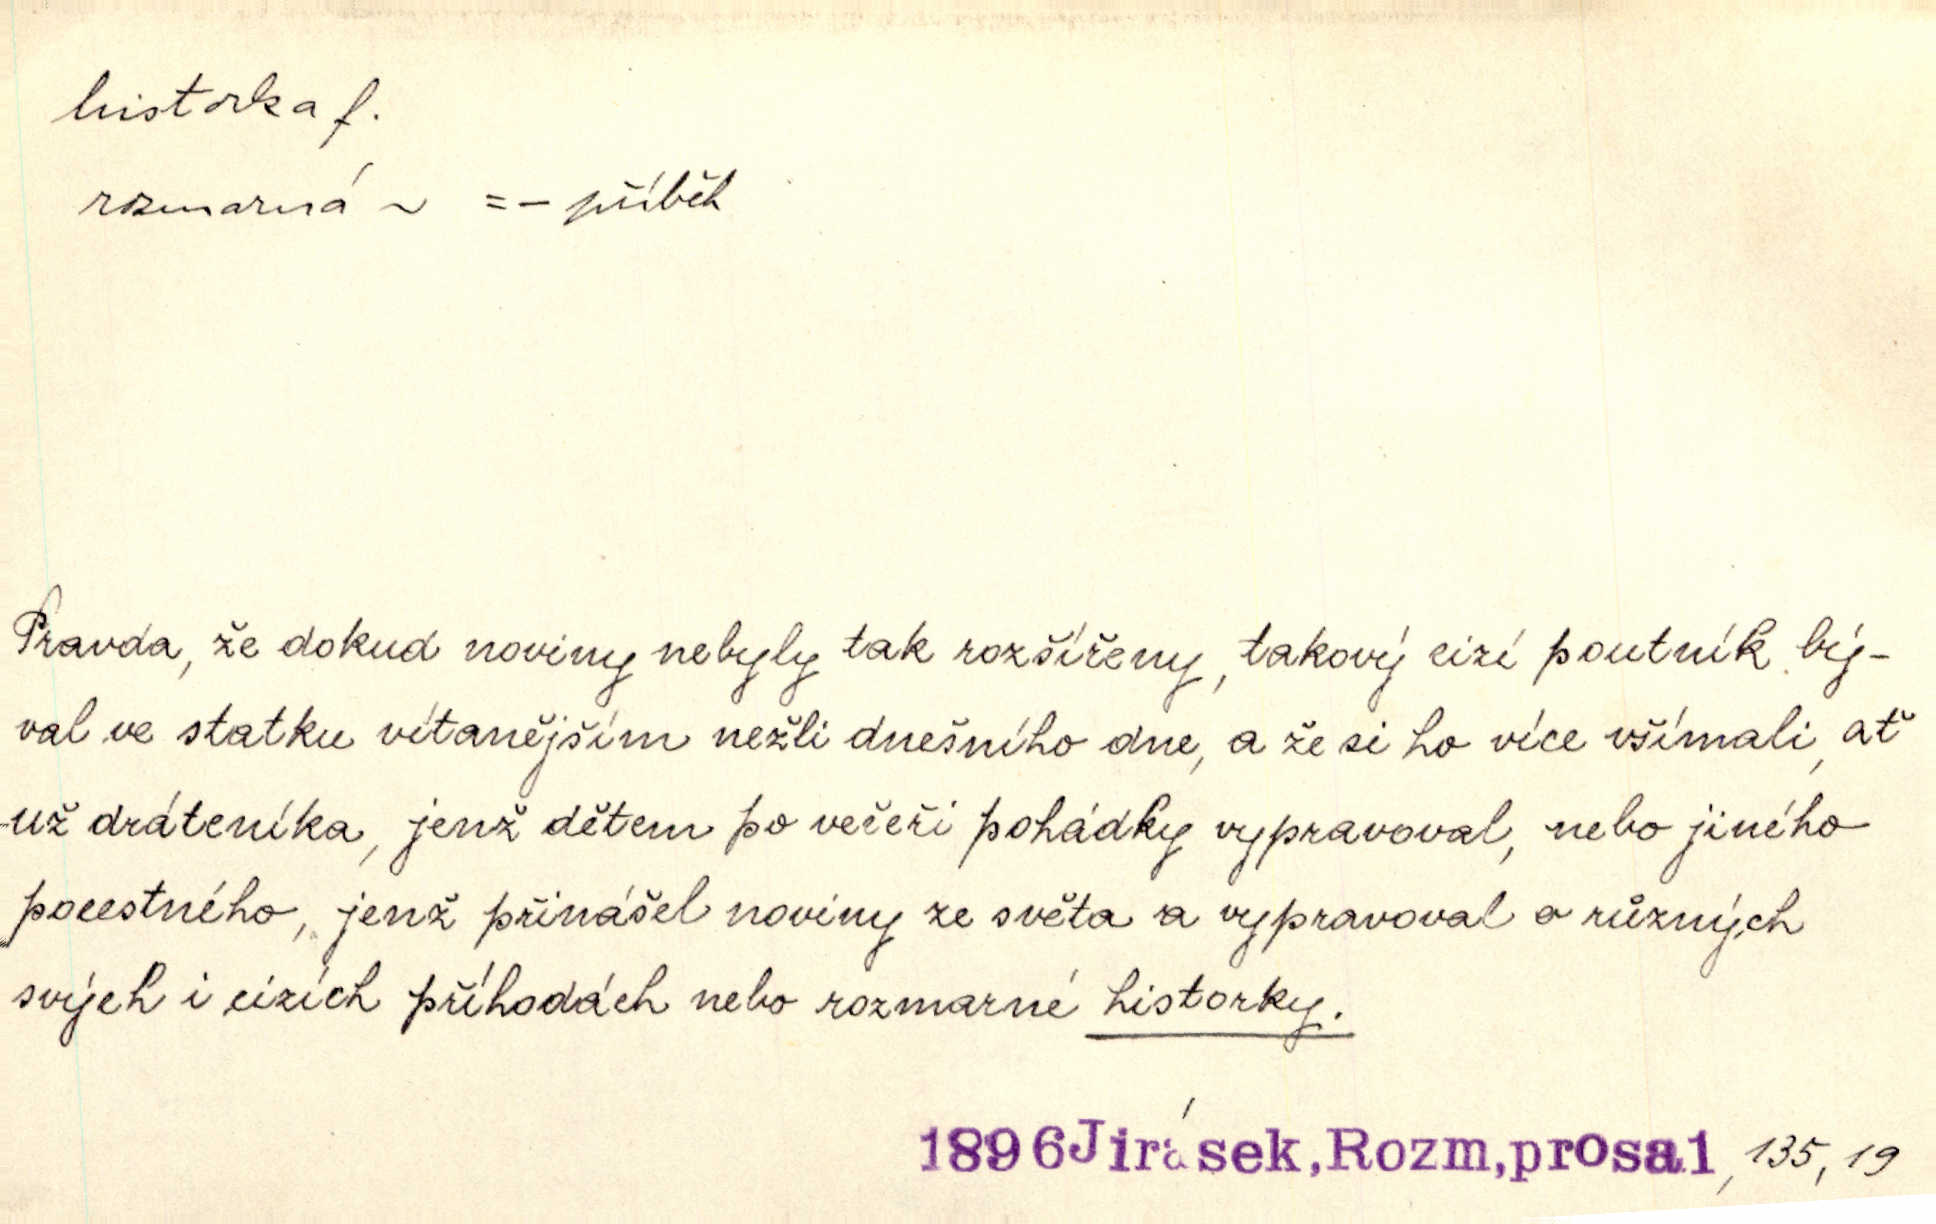 historka f.
rozmarná ~ = – příběh
Pravda, že dokud noviny nebyly tak rozšířeny, takový cizí poutník bý-
val ve statku vítanějším nežli dnešního dne, a že si ho více všímali, ať
už dráteníka, jenž dětem po večeři pohádky vypravoval, nebo jiného
pocestného, jenž přinášel noviny ze světa a vypravoval o různých
svých i cizích příhodách nebo rozmarné historky.
1896 Jirásek, Rozm, prosa 1, 135, 19